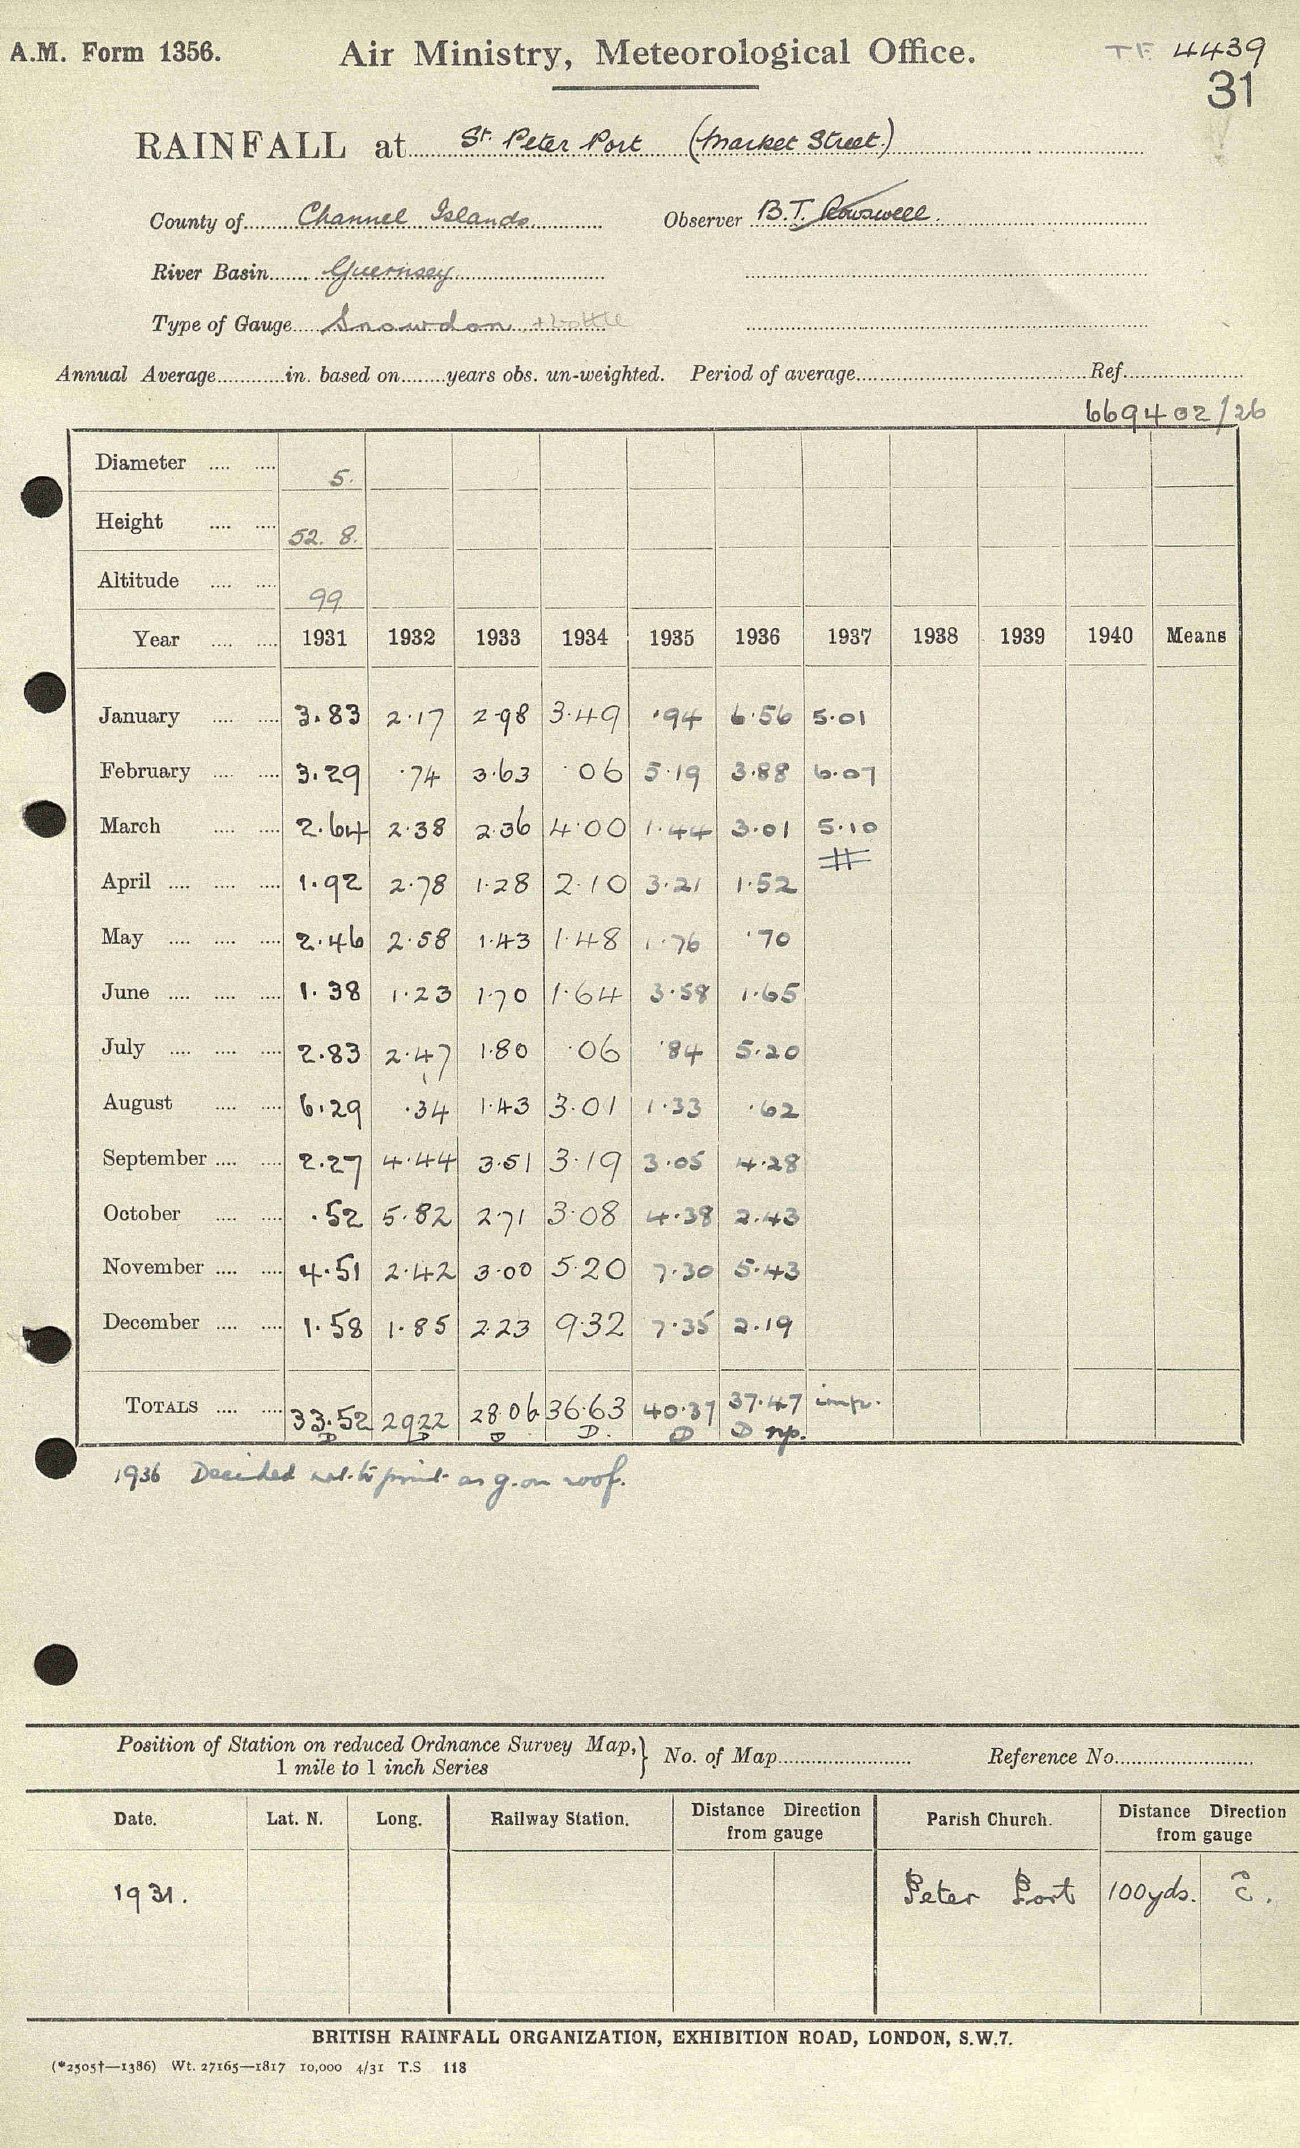 A.M. Form 1356. Air Ministry, Meteorological Office. T F 4439
31
RAINFALL at St. Peter Port (Market Street)
County of Channel Islands Observer B.T. Rowswell.
River Basin Guernsey
Type of Gauge Snowdon + bottle
Annual Average in. based on years obs. un-weighted. Period of average Ref.
669402/26
Diameter 5.
Height 52. 8.
Altitude 99
Year 1931 1932 1933 1934 1935 1936 1937 1938 1939 1940 Means
January 3.83 2.17 2.98 3.49 .94 6.56 5.01
February 3.29 .74 3.63 .06 5.19 3.88 6.07
March 2.64 2.38 2.36 4.00 1.44 3.01 5.10
April 1.92 2.78 1.28 2.10 3.21 1.52
May 2.46 2.58 1.43 1.48 1.76 .70
June 1.38 1.23 1.70 1.64 3.58 1.65
July 2.83 2.47 1.80 .06 .84 5.20
August 6.29 .34 1.43 3.01 1.33 .62
September 2.27 4.44 3.51 3.19 3.05 4.28
October .52 5.82 2.71 3.08 4.38 2.43
November 4.51 2.42 3.00 5.20 7.30 5.43
December 1.58 1.85 2.23 9.32 7.35 2.19
TOTALS 33.52 29.22 28.06 36.63 40.37 37.47 imp.
D D D D. D D np.
1936 Decided not to print as g. on roof.
Position of Station on reduced Ordnance Survey Map, } No. of Map Reference No.
1 mile to 1 inch Series
Date. Lat. N. Long. Railway Station. Distance Direction from gauge Parish Church. Distance Direction from gauge
1931. Peter Port 100yds. E.
BRITISH RAINFALL ORGANIZATION, EXHIBITION ROAD, LONDON, S.W.7.
(*2505†—1386) Wt. 27165—1817 10,000 4/31 T.S 118